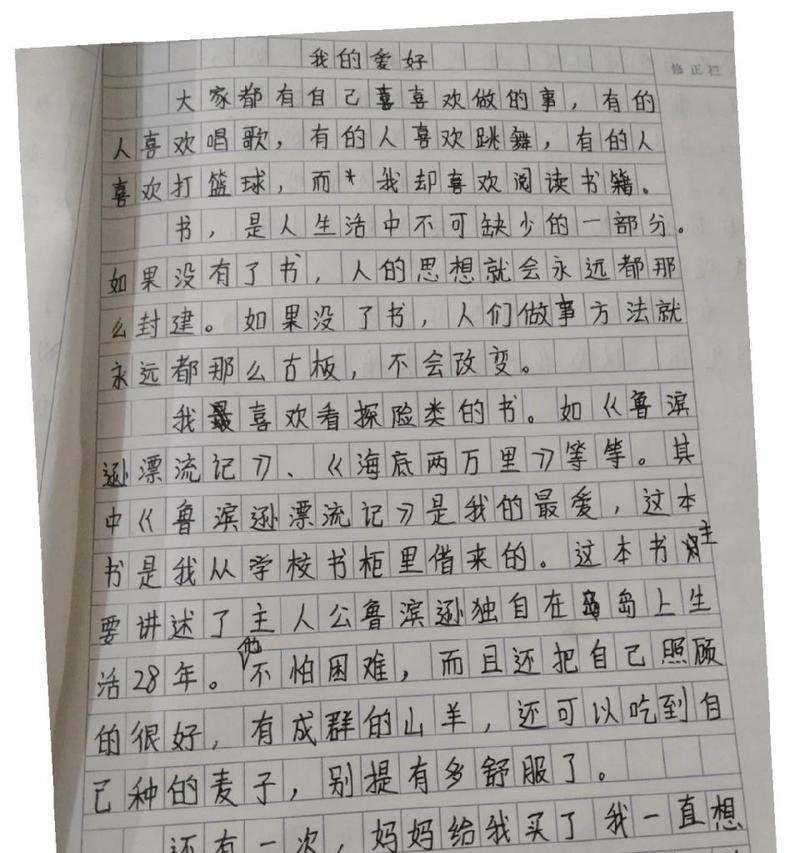 我的爱好
修正栏
大家都有自己喜喜欢做的事，有的
人喜欢唱歌，有的人喜欢跳舞，有的人
喜欢打篮球，而我却喜欢阅读书籍。
书，是人生活中不可缺少的一部分。
如果没有了书，人的思想就会永远都那
么封建。如果没了书，人们做事方法就
永远都那么古板，不会改变。
我最喜欢看探险类的书。如《鲁滨
逊漂流记》、《海底两万里》等等。其
中《鲁滨逊漂流记》是我的最爱，这本
书是我从学校书柜里借来的。这本书主
要讲述了主人公鲁滨逊独自在岛上生
活28年。他不怕困难，而且还把自己照顾
的很好，有成群的山羊，还可以吃到自
已种的麦子，别提有多舒服了。
还有一次，妈妈给我买了我一直想